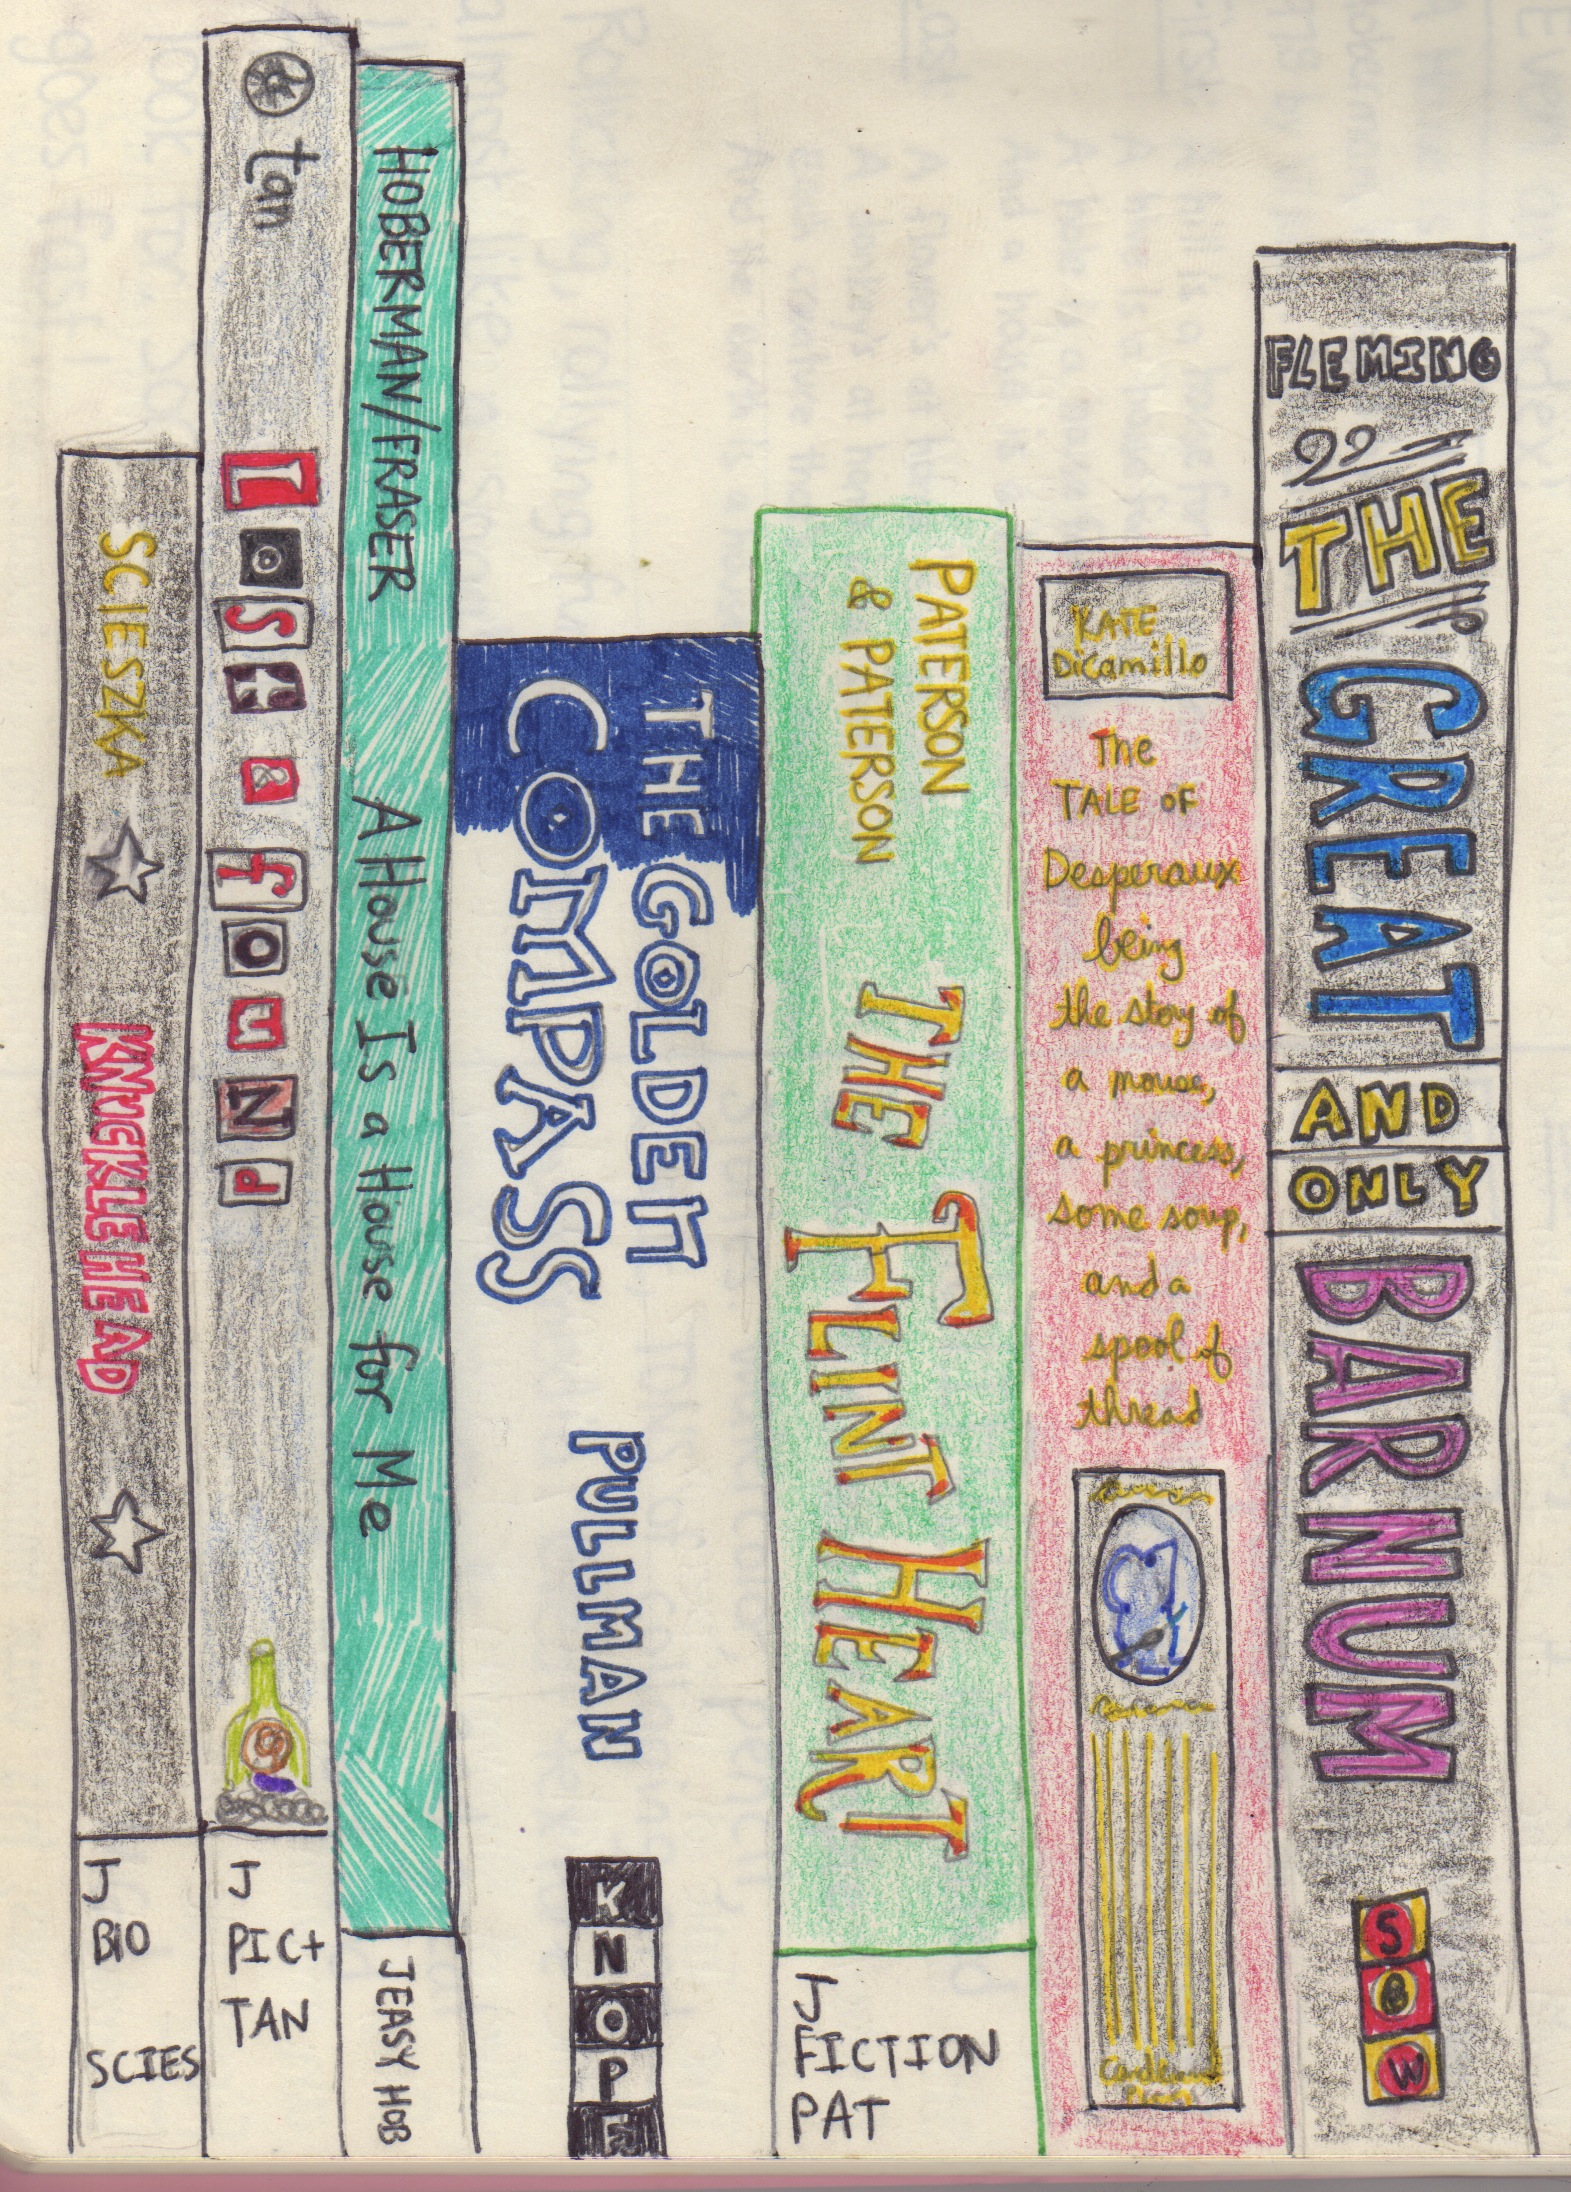 SCIESZKA
KNUCKLEHEAD
J
BIO
SCIES
tan
LoSt & foUNd
J
PIC+
TAN
HOBERMAN/FRASER
A House Is a House for Me
JEASY HOB
THE GOLDEN
COMPASS
PULLMAN
KNOPF
PATERSON
& PATERSON
THE
FLINT HEART
J
FICTION
PAT
KATE
DiCamillo
The
TALE OF
Desperaux
being
the story of
a mouse,
a princess,
some soup,
and a
spool of
thread
Candlewick
Press
FLEMING
THE
GREAT
AND
ONLY
BARNUM
S&W